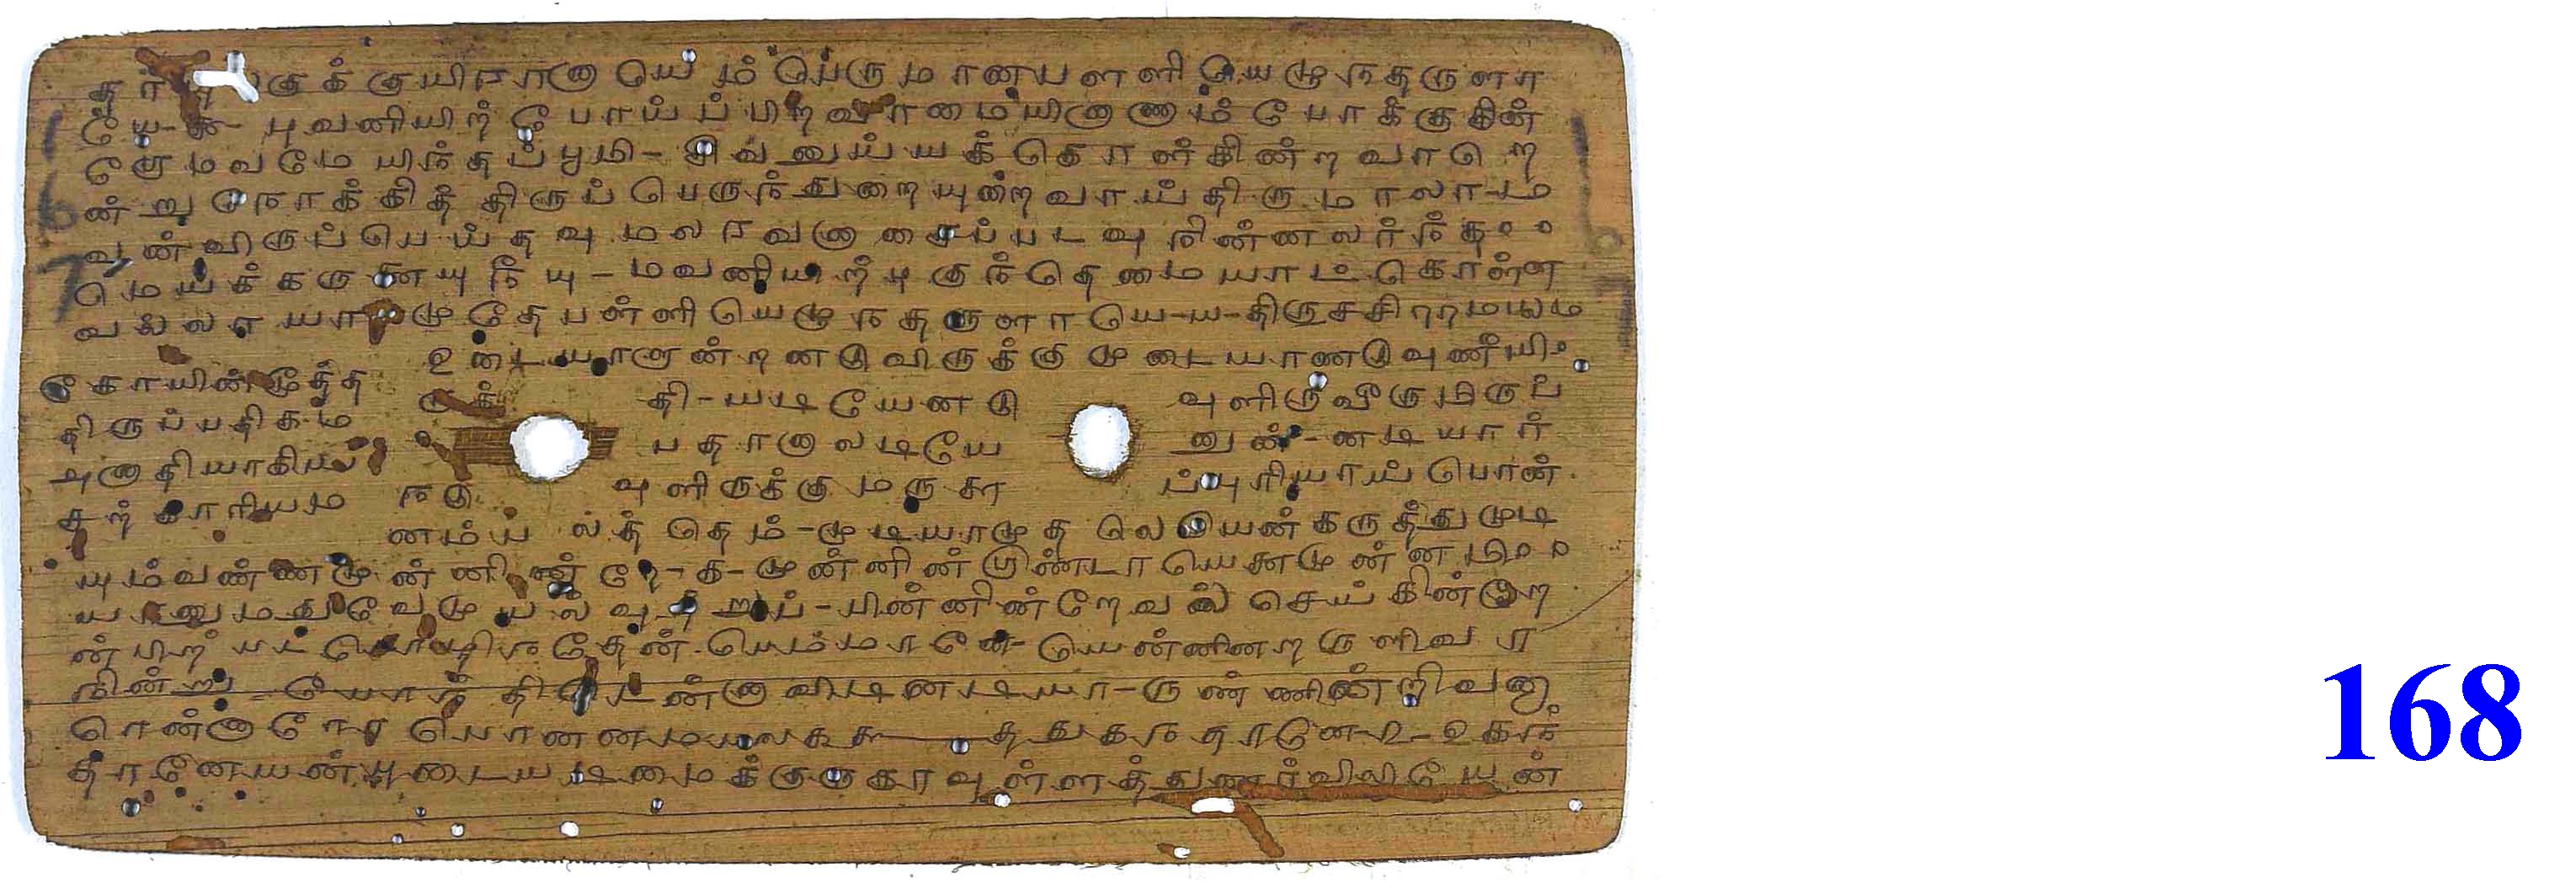 தர்  குக் குயிரானாயெம் பெருமானபளளியெழுநதருளா
யே-க- புவனியிற் போய்ப்பிறவாமையினாணாம் போக்குகின்
றோமவமேயிந்தப்பூமி-சிவனுய்யக்கொள்கின்றவாறெ
ன்று நோக்கித் திருப்பெருந்துறையுறைவாய் திருமாலா-ம
வன்விருப்பெய்தவுமலரவனாசைப்படவு நின்னலர்ந்த
மெய்க்கருணையுநீயு-மவனியிற்புகுந்தெமையாடகொள்ள
வல்லாயாரமுதேபள்ளியெழுநதருளாயெ-ய-திருசசிறறமபலம
உடையாளுன்றனடுவிருக்குமுடையாணடுவுணீயி
கோயின்மூத்த ருக் தி-யடியேனடு வுளிருவீருமிருப்
திருப்பதிகம பதானாலடியே னுன்-னடியார்
அனாதியாகிய நடு வுளிருக்குமருளா ப்புரியாய் பொன்
சற்காரியம னம்ப லத் தெம்-முடியாமுத லெயென்கருத்துமுடி
யும்வண்ணமுன்னின்றே-க-முன்னின்றாண்டாயெனைமுன்னமி
யானுமதுவேமுயல்வுற்றுப்-பின்னின்றேவல் செய்கின்றே
ன் பிற்பட்டொழிந்தேன் பெம்மானே-யென்னினறருளிவர
நின்று-போந்திடென்னாவிடினடியா-ருன்னின்றிவனா
ரென்னாரோ பொனனமபலகூ---ததுகநதானே-உ-உகந்
தானேயன்புடையடிமைக்குருகாவுள்ளத்துணர்விலியேன்
168